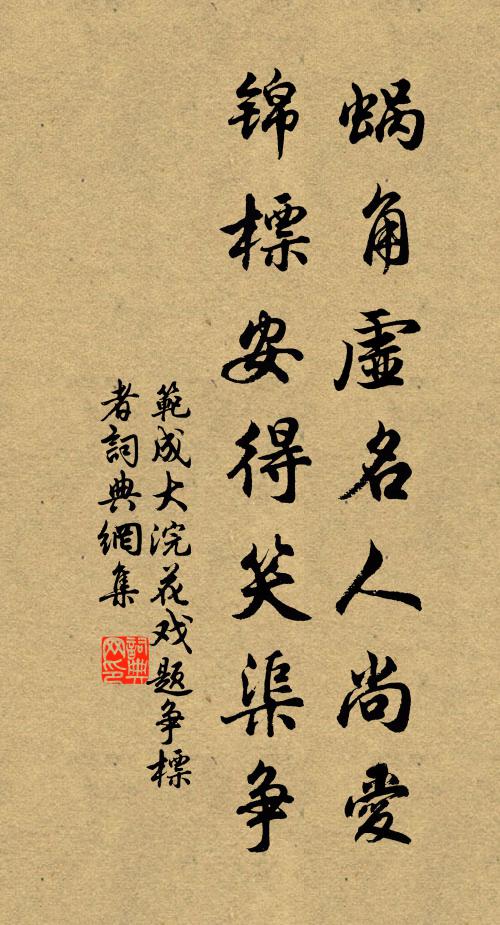 蜗角虚名人尚爱
锦標安得笑渠争
範成大浣花戏题争標
者詞典網集
詞典网印